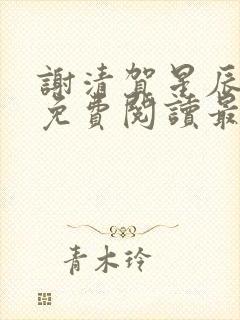 謝清賀星辰
免費閱讀最
青木玲